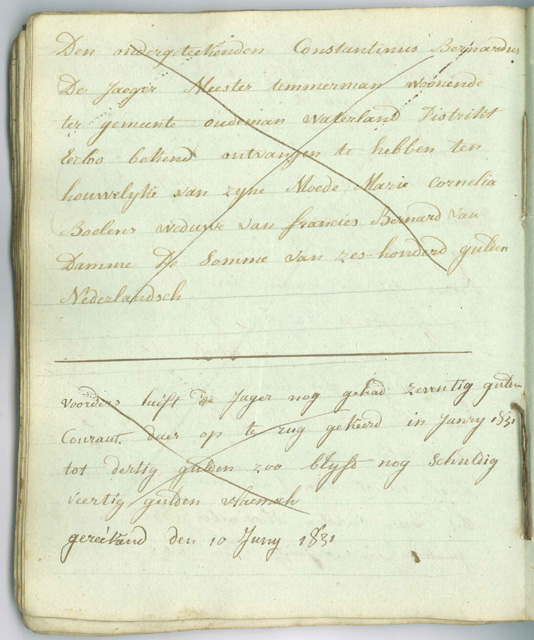 Den ondergeteekenden Constantinus Bernardus
De Jaeger Meester temmerman woonende
ter gemeente oudeman waterland Distrikt
Eecloo bekend ontvangen te hebben ten
houwelyke van zyne Moede Marie Cornelia
Boelens weduwe van francies Bernard van
Damme De Somme van zes-honderd gulden
Nederlandsch
voorders heeft de Jager nog gehad zeventig gulden
Courant daer op te rug gekeerd in Juny 1831
tot dertig gulden zoo blyft nog Schuldig
veertig gulden vlaemsch
gereekend den 10 Juny 1831